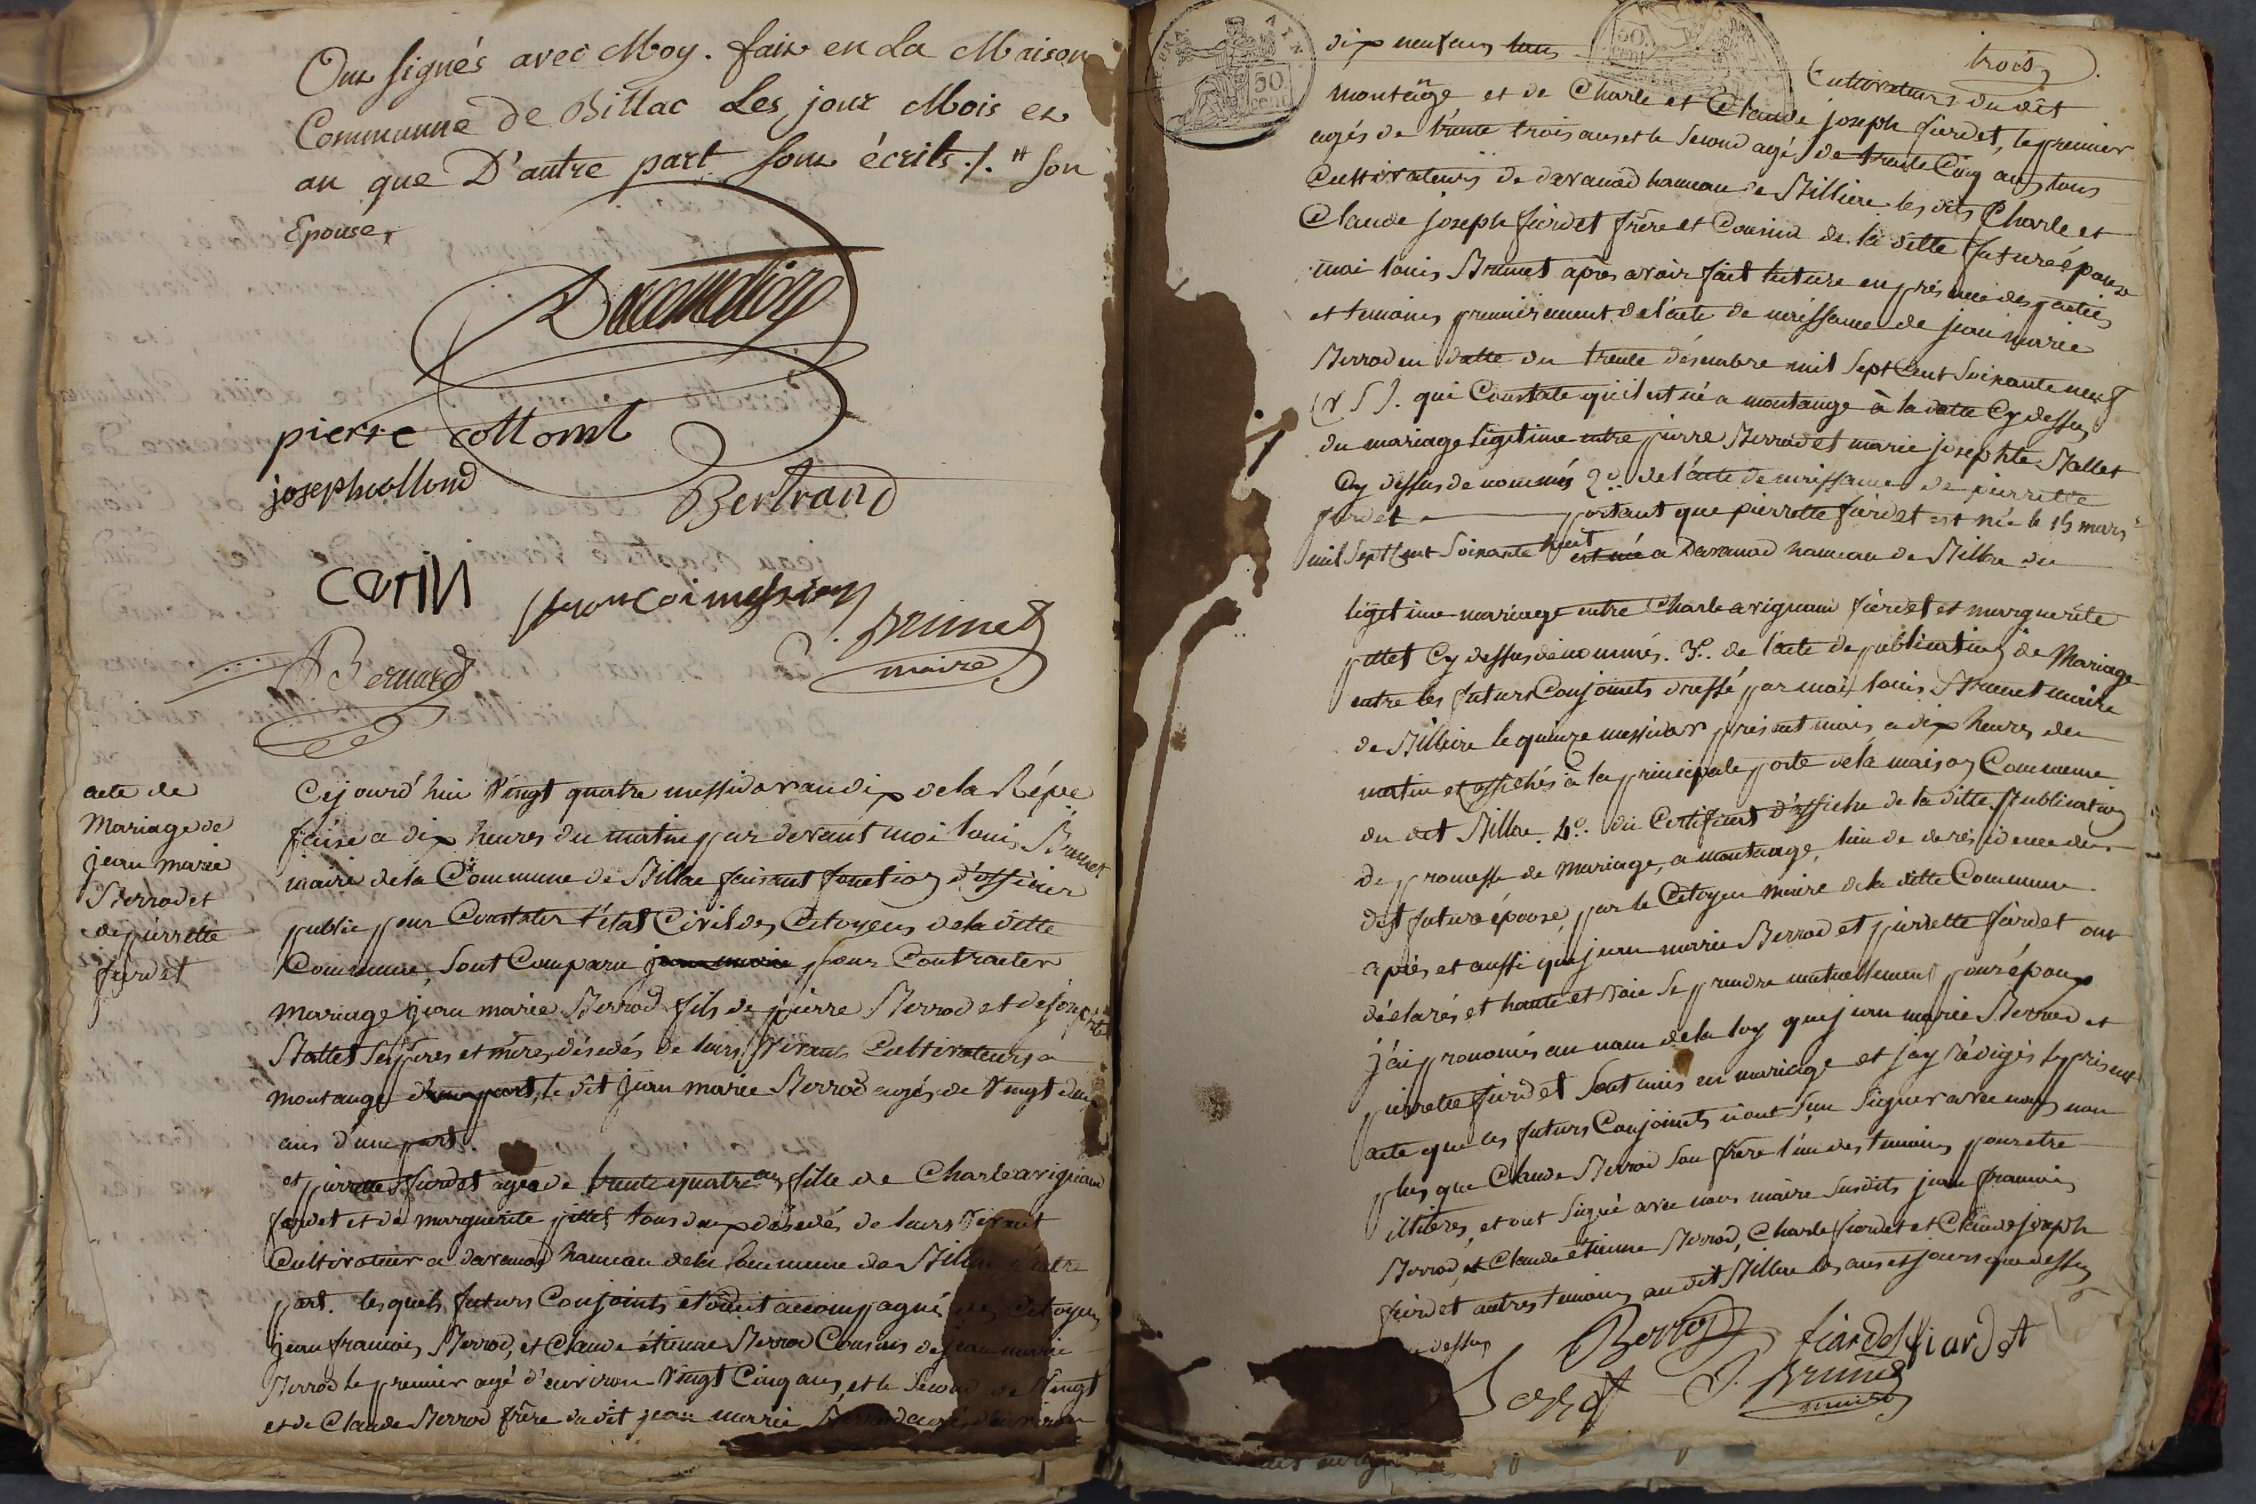 Ont signés avec Moy. fait en La Maison
Commune de Billac Les jour Mois et
an que D'autre part sont écrits ./. # son
Epouse,
pierre collomb
joseph collond
Bertrand
carin
Brunet
maire
Bernard
acte de
Mariage de
jean marie
Berrod et
de pierrette
fierdet
Cejourd'hui vingt quatre messidor an dix de la Répu
faise a dix heures du matin par devant moi louis Brunet
maire de la Commune de Billac faisant fonction d'officier
public pour Constater l'état Civil des Citoyens de la ditte
Commune, sont Comparu jean marie pour Contracter
mariage jean marie Berrod fils de pierre Berrod et de josephte
Ballet ses pères et mères désedés de leurs vivant Cultivateurs a
montange d'une part, le dit jean marie Berrod agés de vingt
ans d'une part.
et pierrette fierdet agée de trente quatre ans fille de Charle avignam
fierdet et de marguerite pittet tous deux désedés de leurs vivant
Cultivateur a davanod hameau de la Commune de Billac d'autre
part. lesquels futurs Conjoints étoient accompagné des Citoyen
jean francois Berrod, et Claude étienne Berrod Cousins de jean marie
Berrod le premier agé d'environ vingt Cinq ans, et le second de vingt
et de Claude Berrod frère du dit jean marie Berrod agé d'environ
dix neuf ans tous
trois
Cultivateurs du dit
montange et de Charle et Claude joseph fierdet, le premier
agés de trente trois ans et le second agé de trente Cinq ans tous
Cultivateurs de davanod hameau de Billiere les dits Charle et
Claude joseph fierdet frère et Cousin de la ditte future épouse
moi louis Brunet après avoir fait lecture en présence des parties
et temoins premièrement de l'acte de naissance de jean marie
Berrod en datte du trente désembre mil sept Cent soixante neuf
(v S). qui Constate qu'il est né a montange à la datte Cy dessus
du mariage légitime entre pierre Berrod et marie josephte Ballet
Cy dessus de nommés 2°. de l'acte de naissance de pierrette
fierdet portant que pierrette fierdet est née le 15 mars
mil sept Cent soixante huit est née a Davanod hameau de Billac du
légitime mariage entre Charle avignam fierdet et marguerite
pittet Cy dessus dénommés. 3°. de l'acte de publication de Mariage
entre les futurs Conjoints dressé par moi louis Brunet maire
de Billiere le quinze messidor présent mois a dix heures du
matin et affichés à la principale porte de la maison Commune
du dit Billac. 4°. du Certificat d'affiche de la ditte publication
de promesse de mariage, a montange, lieu de de résidence du
dit futur épouse, par le Citoyen Maire de la ditte Commune.
après et aussi que jean marie Berrod et pierrette fierdet ont
déclarés et haute et voie se prendre mutuellement pour époux
j'ai prononcés au nom de la loy que jean marie Berrod et
pierrette fierdet sont unis en mariage et j'ay rédigés le présent
acte que les futurs Conjoints n'ont sçu signer avec nous non
plus que Claude Berrod son frère l'un des temoins pour etre
illitères, et ont signé avec nous maire susdits jean francois
Berrod, et Claude étienne Berrod, Charle fierdet et Claude joseph
fierdet autres temoins au dit Billac les ans et jours que dessus
dessus
Berrod fiardet fiardet
Brunet
maire